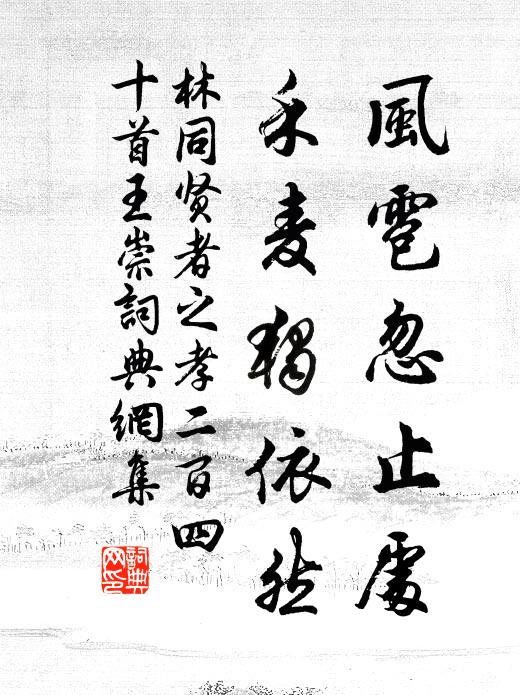 風雹忽止處
禾麦獨依然
林同贤者之孝二百四
十首王崇詞典網集
詞典
网印